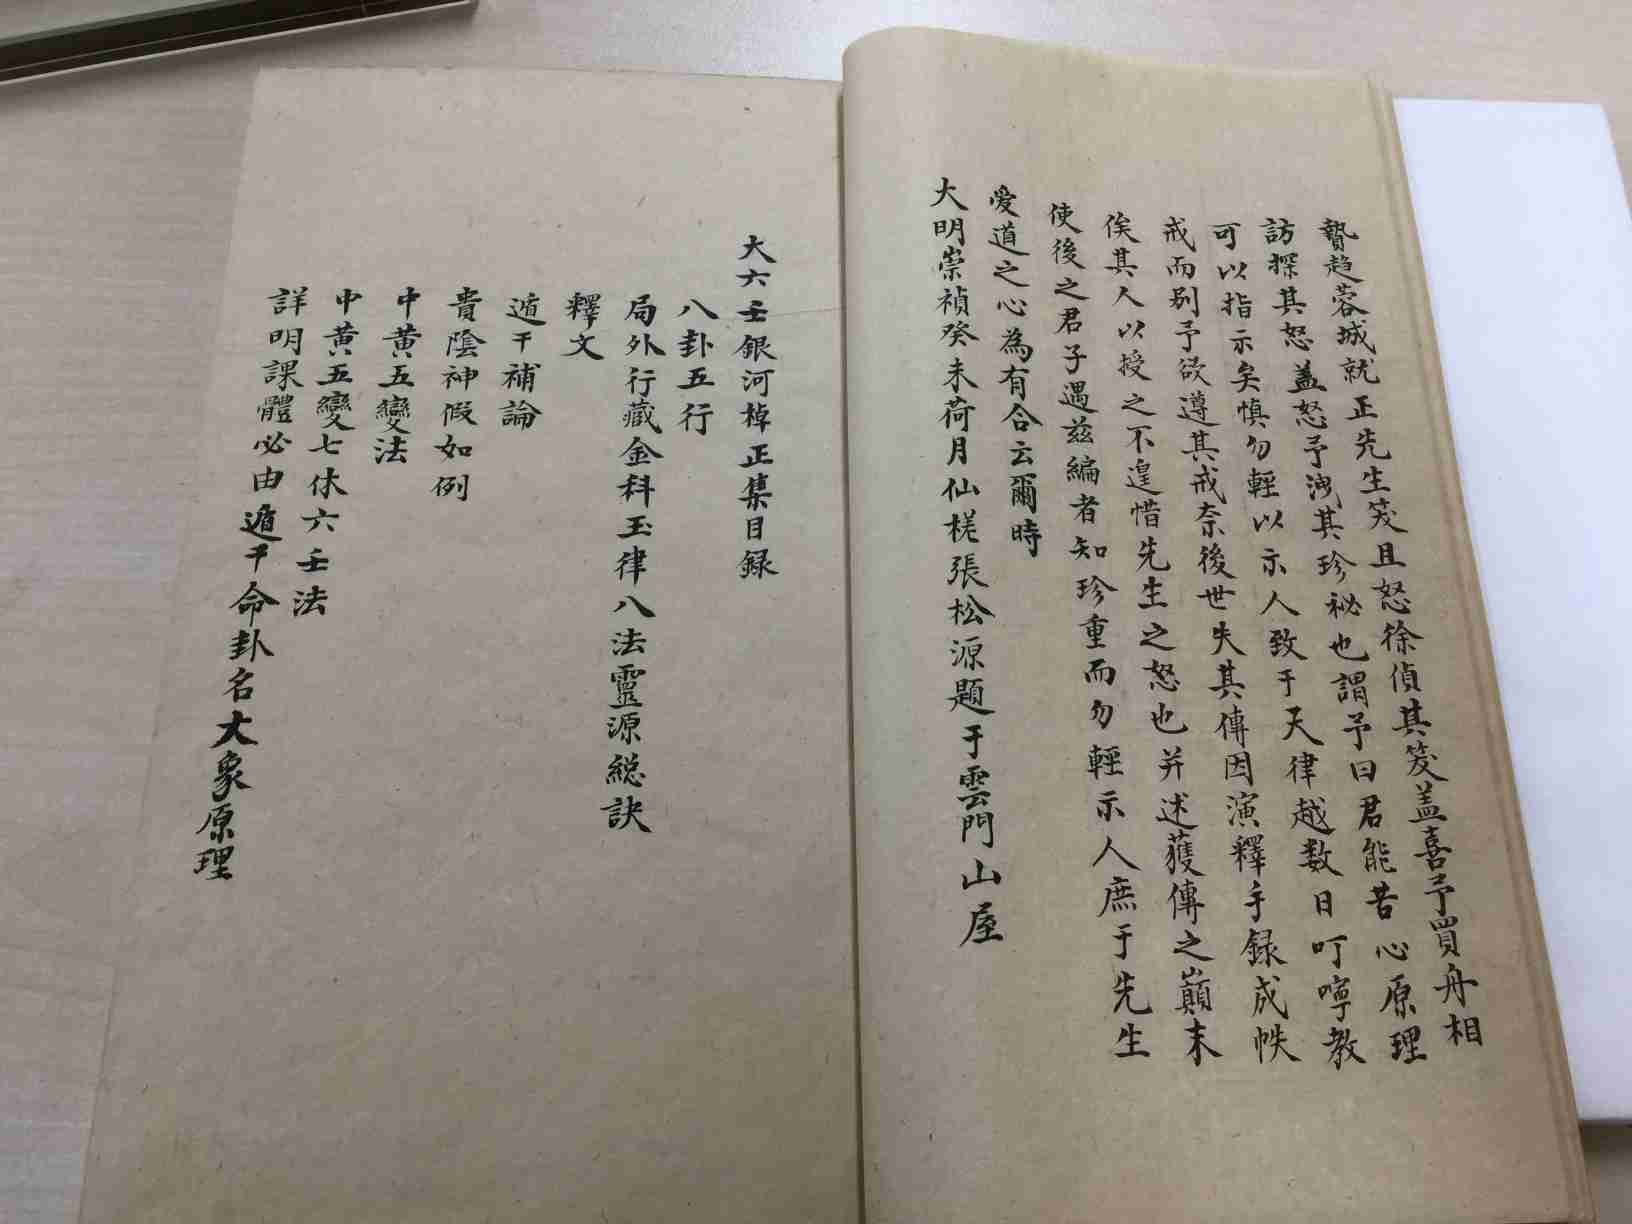 贄趋蓉城就正先生笅且怒徐偵其笅盖喜予買舟相
訪探其怒盖怒予洩其珍祕也謂予曰君能苦心原理
可以指示矣慎勿輕以示人致于天律越数日叮嚀教
戒而别予欲遵其戒奈後世失其傳因演釋手録成帙
俟其人以授之不遑惜先生之怒也并述獲傳之巔末
使後之君子遇兹編者知珍重而勿輕示人庶于先生
愛道之心為有合云爾時
大明崇禎癸未荷月仙槎張松源題于雲門山屋
大六壬銀河棹正集目録
八卦五行
局外行藏金科玉律八法靈源総訣
釋文
遁干補論
貴陰神假如例
中黄五變法
中黄五變七休六壬法
詳明課體必由遁干命卦名大象原理